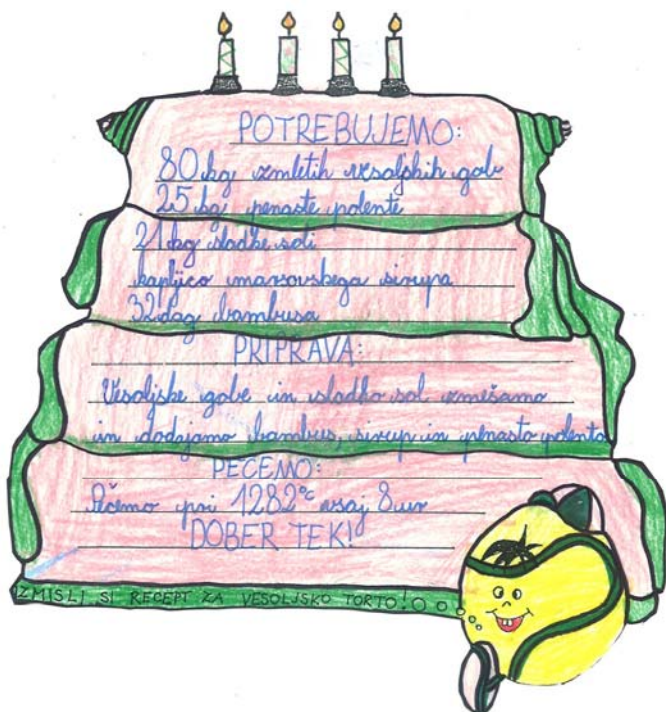 POTREBUJEMO:
80 kg zmletih vesoljskih gob
25 kg penaste polente
21 kg sladke soli
kapljico marsovskega sirupa
32 dag bambusa
PRIPRAVA:
Vesoljske gobe in sladko sol zmešamo
in dodajamo bambus, sirup in penasto polento
PEČEMO:
Pečemo pri 1282°C vsaj 8 ur
DOBER TEK!
IZMISLI SI RECEPT ZA VESOLJSKO TORTO!